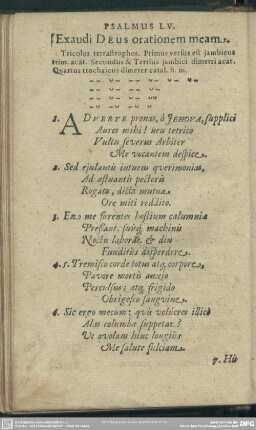 PSALMUS LV.
Exaudi DEUS orationem meam.
Tricolos tetrastrophos. Primus versus est jambicus
trim. acat. Secundus & Tertius jambici dimetri acat.
Quartus trochaicus dimeter catal. h. m.
1. ADVERTE pronas, ô JEHOVA, supplici
Aures mihi! neu tetrico
Vultu severus Arbiter
Me vocantem despice.
2. Sed ejulantis intuens querimonias,
Ad æstuantis pectoris
Rogata, dicta mutua
Ore miti reddito.
3. En me furentes hostium calumniæ
Prestant, suisq; machinis
Noctu laborat & diu
Funditus disperdere.
4. 5. Tremisco corde totus atq; corpore,
Pavore mortis anxio
Perculsus; atq; frigido
Obrigesco sanguine.
6. Sic ergo mecum: quis volucres illico
Alas columbæ suppetat?
Ut avolans hinc longius
Me salute fulciam.
7. Hic